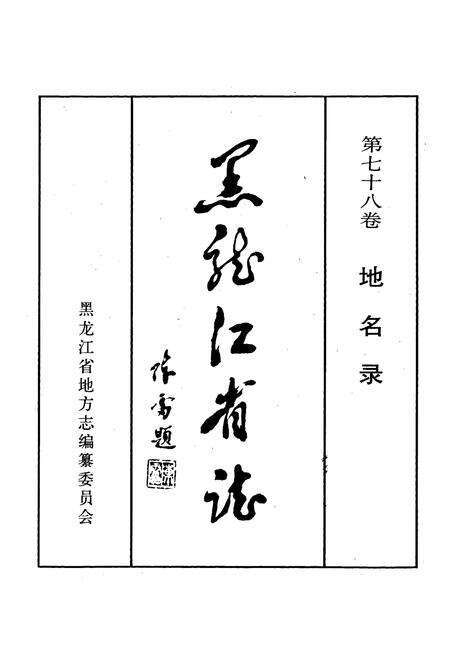 第七十八卷 地名录
黑龙江省志
陈雷题
黑龙江省地方志编纂委员会